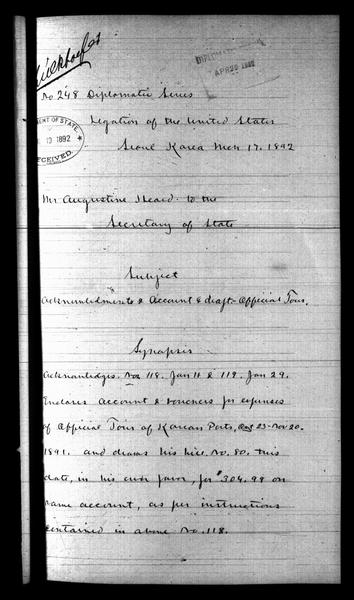 No 248 Diplomatic Series
Legation of the United States
Seoul Korea Mch 17. 1892
DIPLOMATIC
APR 29 1892
MENT OF STATE
1892
RECEIVED
Mr Augustine Heard to the
Secretary of State
Subject
Acknowledgments & Account & draft - Official Tour.
Synopsis
Acknowledges Nos 118. Jan 11 & 119. Jan 29.
Encloses account & vouchers for expenses
of Official Tour of Korean Ports, 23 - Nov 20.
1891. and draws his bill No. 80. this
date, in his own favor, for $304.99 on
same account, as per instructions
contained in above No. 118.